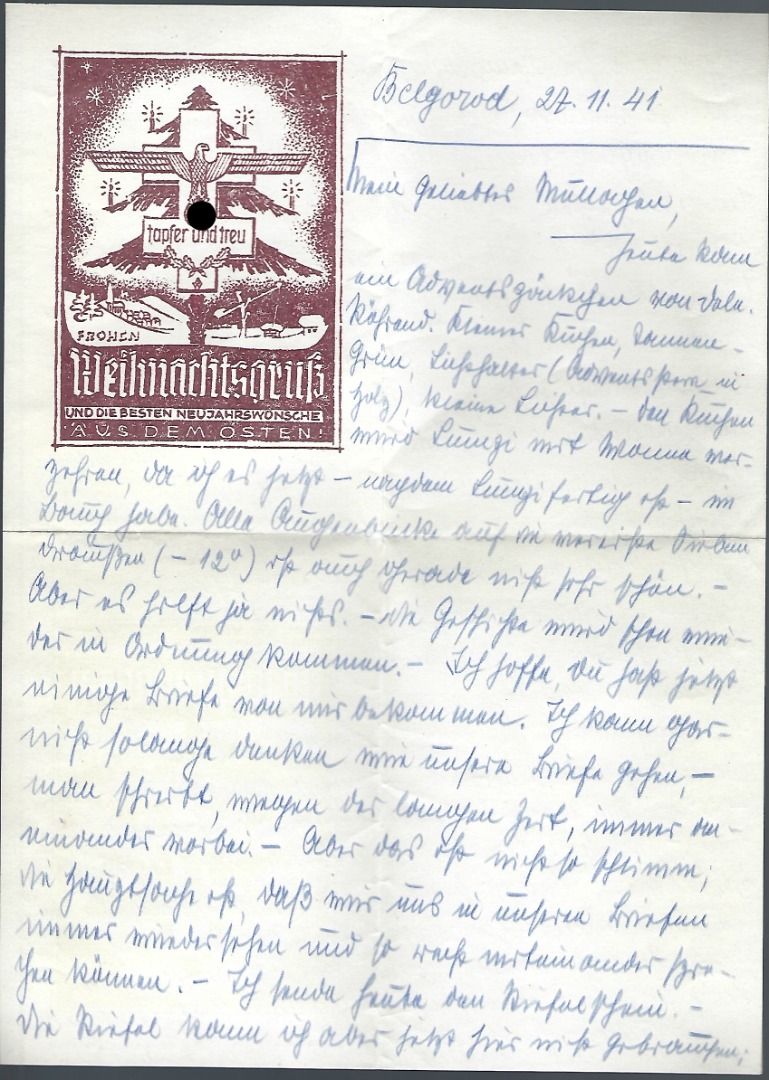 tapfer und treu
FROHEN
Weihnachtsgruß
UND DIE BESTEN NEUJAHRSWÜNSCHE
AUS DEM OSTEN!
Belgorod, 27.11.41
Mein geliebtes
heute kam
ein Adventspäckchen von
Kleiner Kuchen, Tannen-
grün, Lichthalter (Adventskerze in
Holz), kleine Lichter. – Den Kuchen
wird mit Wonne ver-
zehren, da ich es jetzt – nachdem fertig ist – im
Bauch habe. Alle Augenblicke auf die vereiste
draußen (– 12°) ist auch gerade nicht sehr schön. –
Aber es hilft ja nichts. – Die Geschichte wird schon wie-
der in Ordnung kommen. – Ich hoffe, du hast jetzt
einige Briefe von mir bekommen. Ich kann gar-
nicht solange denken wie unsere Briefe gehen, –
man schreibt, wegen der langen Zeit, immer an-
einander vorbei. – Aber das ist nicht so schlimm;
die Hauptsache ist, daß wir uns in unseren Briefen
immer wiedersehen und so recht miteinander spre-
chen können. – Ich sende heute den Stiefelschein. –
Die Stiefel kann ich aber jetzt hier nicht gebrauchen;